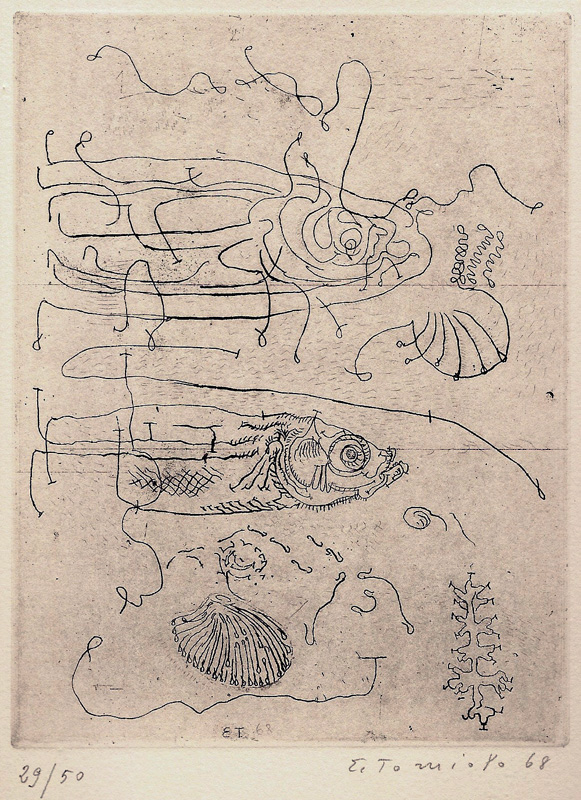 ET 68
29/50
E. Tomiolo 68